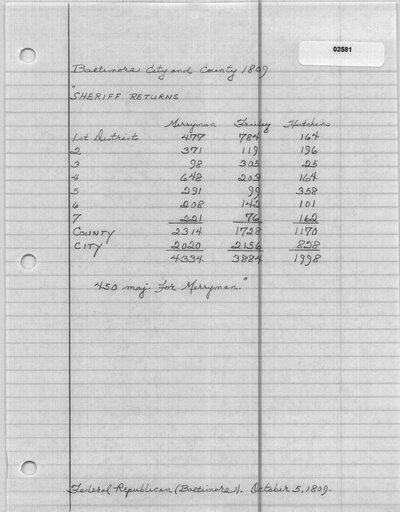 02581
Baltimore City and County 1809
"
SHERIFF RETURNS
Merryman Frailey Hutchins
1st District 477 784 164
2 371 119 196
3 98 305 25
4 648 203 164
5 291 99 358
6 208 142 101
7 221 76 162
COUNTY 2314 1728 1170
CITY 2020 2156 828
4334 3884 1998
450 maj. for Merryman."
Federal Republican (Baltimore). October 5, 1809.